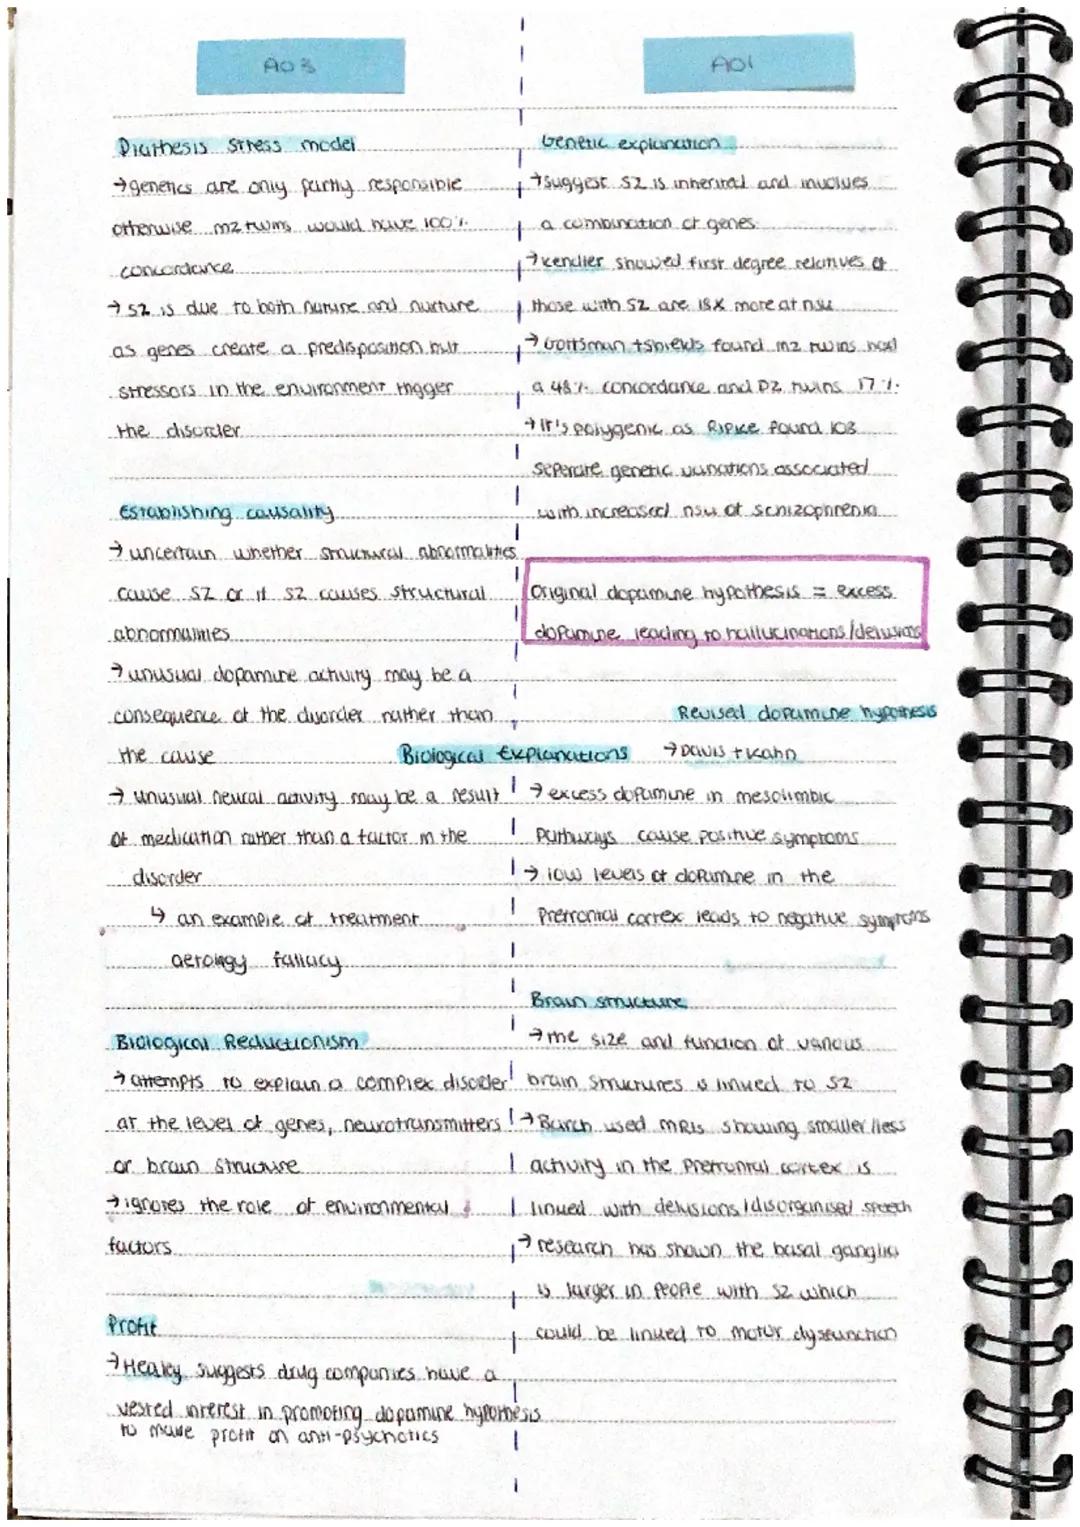 AO3
Diathesis stress model
→ genetics are only partly responsible
otherwise mz twins would have 100%
concordance
→ SZ is due to both nature and nurture
as genes create a predisposition but
stressors in the environment trigger
the disorder
Establishing causality
→ uncertain whether structural abnormalities
cause SZ or if SZ causes structural
abnormalities
→ unusual dopamine activity may be a
consequence of the disorder rather than
the cause
Biological Explanations
→ unusual neural activity may be a result
of medication rather than a factor in the
disorder
↳ an example of treatment
aetiology fallacy
Biological Reductionism
→ attempts to explain a complex disorder
at the level of genes, neurotransmitters
or brain structure
→ ignores the role of environmental
factors
Profit
→ Healey suggests drug companies have a
vested interest in promoting dopamine hypothesis
to make profit on anti-psychotics
AO1
Genetic explanation
→ suggest SZ is inherited and involves
a combination of genes
→ kendler showed first degree relatives of
those with SZ are 18x more at risk
→ Gottsman + shields found mz twins had
a 48% concordance and DZ twins 17%
→ It's polygenic as Ripke found 108
seperate genetic variations associated
with increased risk of schizophrenia
Original dopamine hypothesis = excess
dopamine leading to hallucinations/delusions
Revised dopamine hypothesis
→ Davis + Kahn
→ excess dopamine in mesolimbic
pathways cause positive symptoms
→ low levels of dopamine in the
Prefrontal cortex leads to negative symptoms
Brain structure
→ The size and function of various
brain structures is linked to SZ
→ Barch used MRIs showing smaller/less
activity in the prefrontal cortex is
linked with delusions/disorganised speech
→ research has shown the basal ganglia
is larger in people with SZ which
could be linked to motor dysfunction